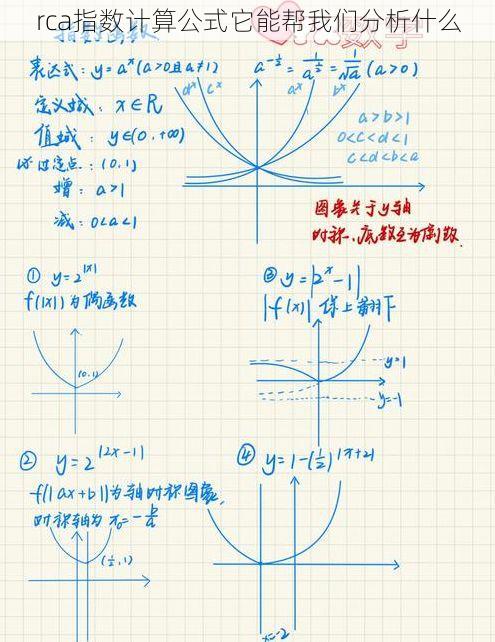 rca指数计算公式它能帮我们分析什么
指数函数
表达式：y=aˣ(a>0且a≠1)
a^{-1/2}=1/a^{1/2}=1/√a (a>0)
dˣ cˣ aˣ bˣ
定义域：x∈R
a>b>1
0<c<d<1
c<d<b<a
值域：y∈(0,+∞)
过定点：(0,1)
增：a>1
减：0<a<1
图象关于y轴
对称，底数互为倒数
① y=2^{|x|}
f(|x|)为偶函数
(0,1)
③ y=|2ˣ-1|
|f(x)| 保上翻下
y=1
y=-1
② y=2^{|2x-1|}
f(|ax+b|)为轴对称图象，
对称轴为 x₀=-b/a
(½,1)
④ y=1-(½)^{|x+2|}
x=-2